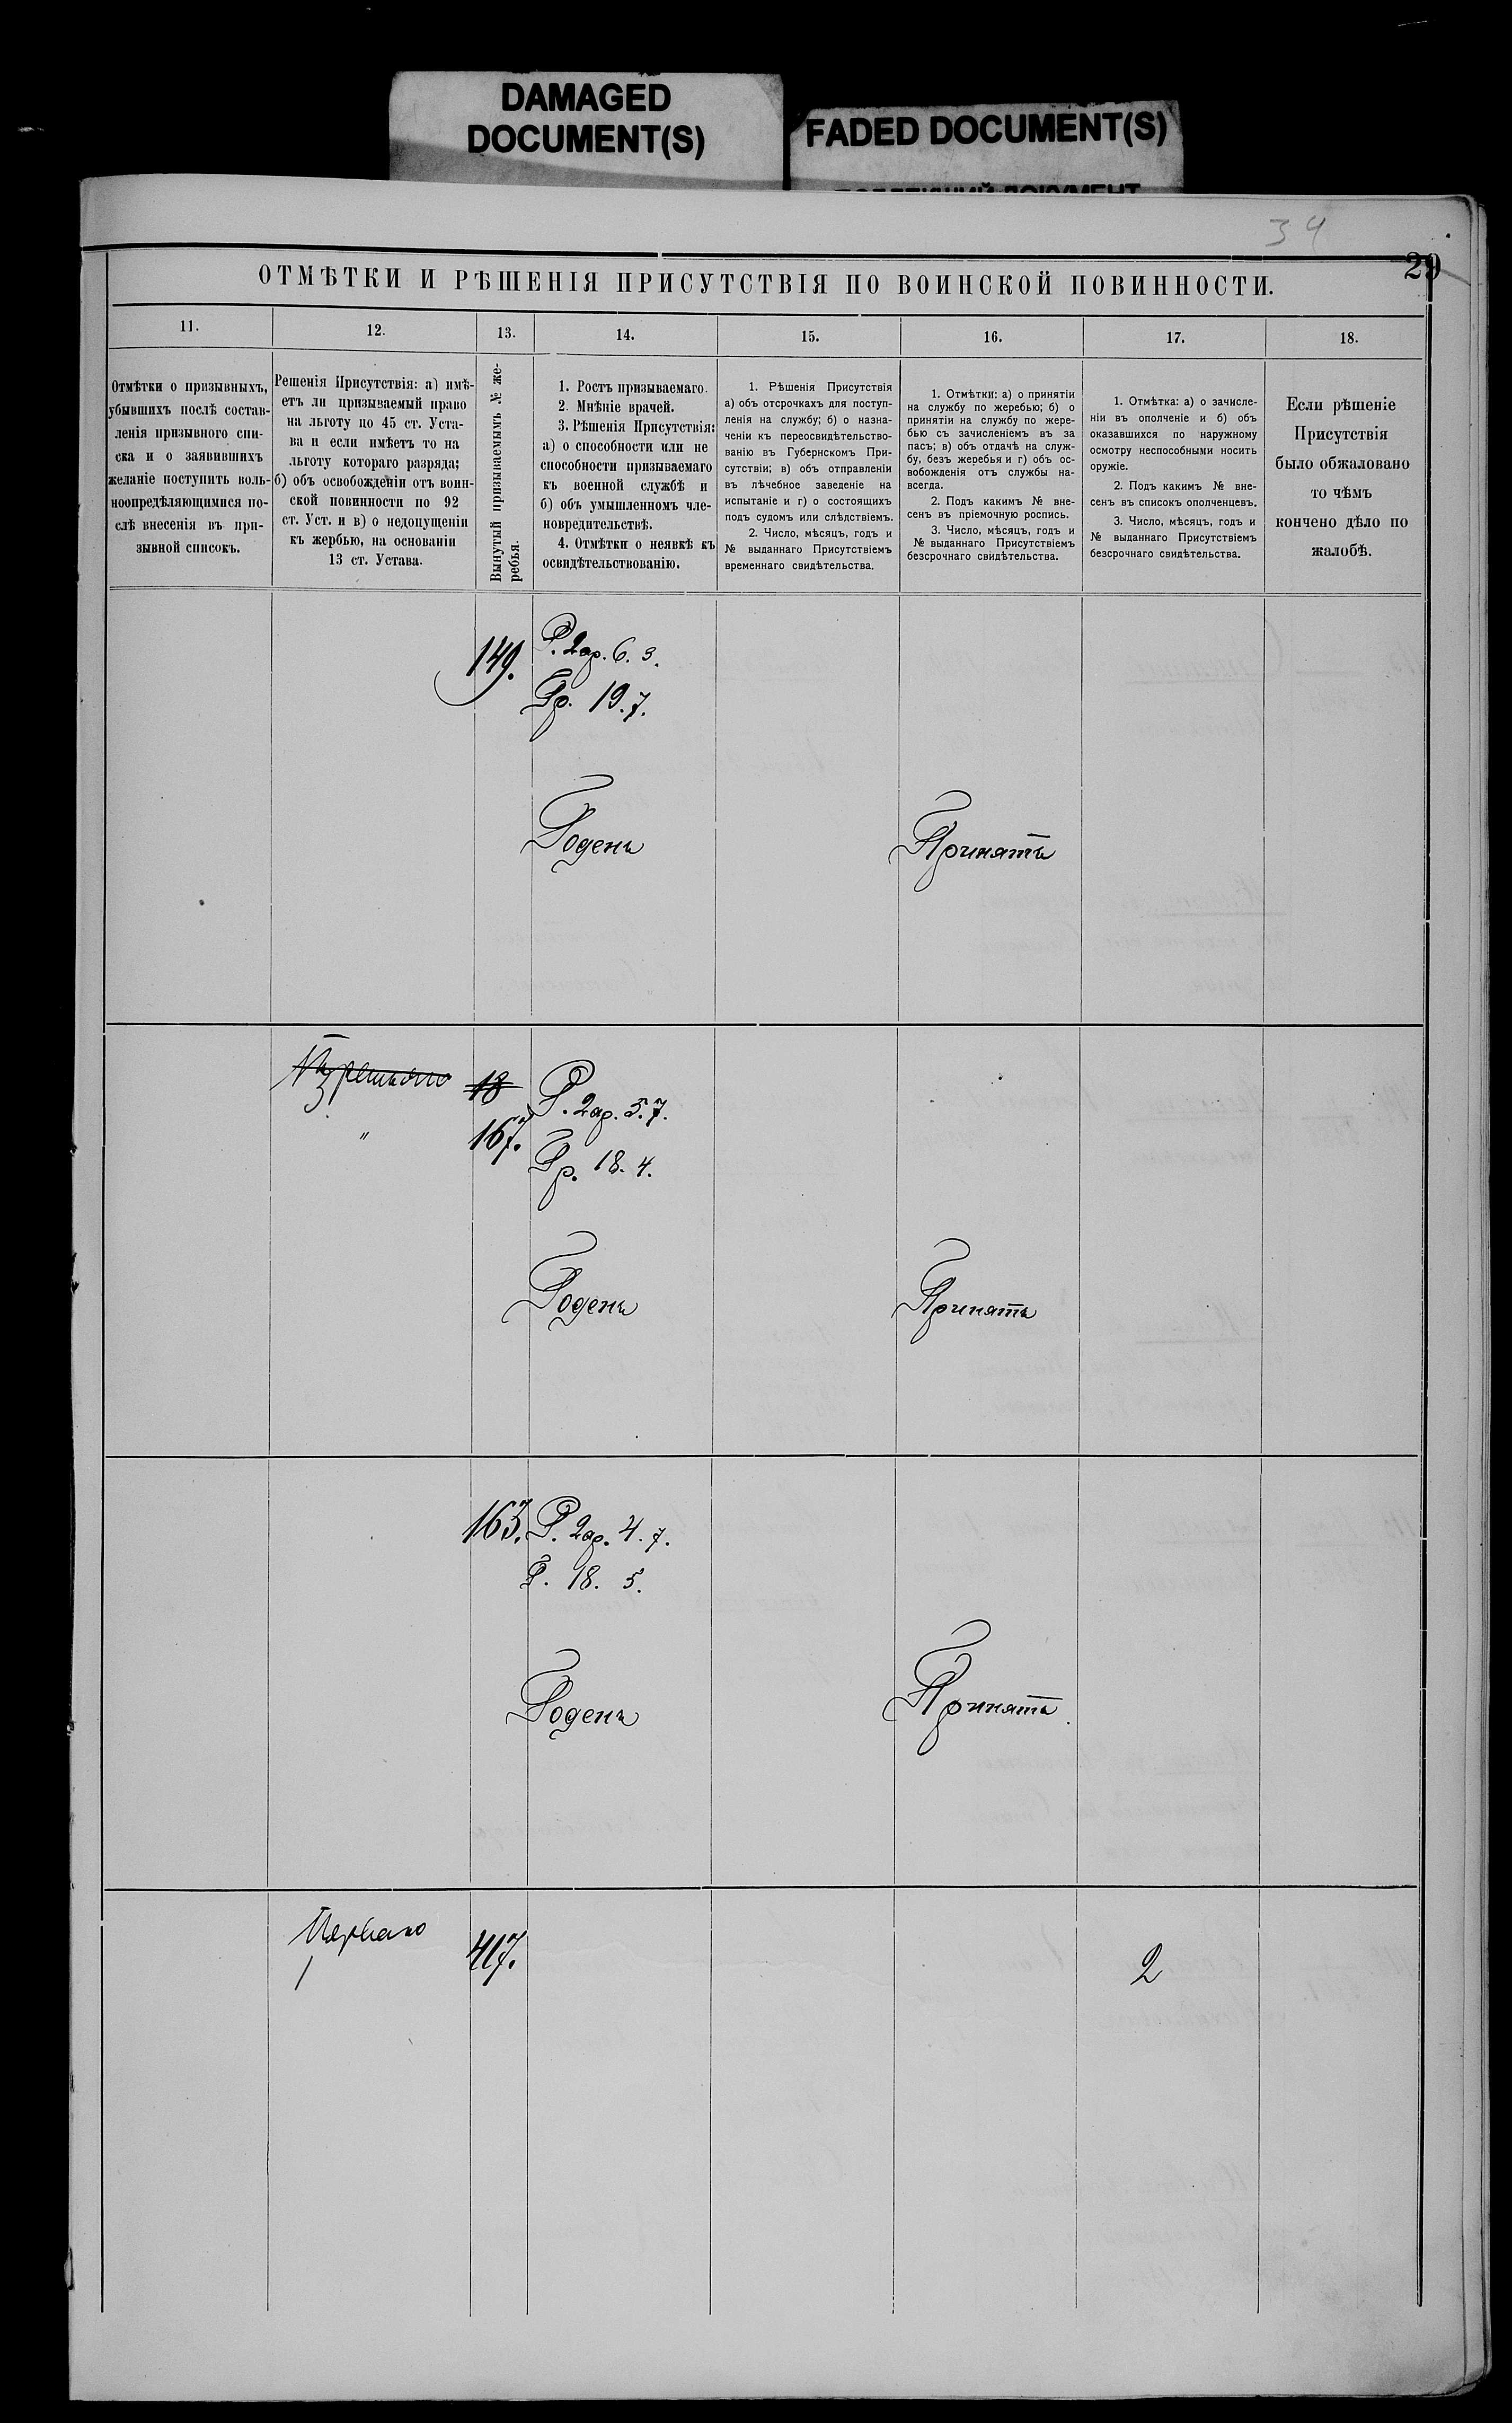 DAMAGED
DOCUMENT(S)
FADED DOCUMENT(S)
34
29
ОТМѢТКИ И РѢШЕНІЯ ПРИСУТСТВІЯ ПО ВОИНСКОЙ ПОВИННОСТИ.
11.
12.
13.
14.
15.
16.
17.
18.
Отмѣтки о призывныхъ,
убывшихъ послѣ состав-
ленія призывного спи-
ска и о заявившихъ
желаніе поступить воль-
ноопредѣляющимися по-
слѣ внесенія въ при-
зывной списокъ.
Решенія Присутствія: а) имѣ-
етъ ли призываемый право
на льготу по 45 ст. Уста-
ва и если имѣетъ то на
льготу котораго разряда;
б) объ освобожденіи отъ воин-
ской повинности по 92
ст. Уст. и в) о недопущеніи
къ жербью, на основаніи
13 ст. Устава.
Вынутый призываемымъ № же-
ребья.
1. Ростъ призываемаго.
2. Мнѣніе врачей.
3. Рѣшенія Присутствія:
а) о способности или не
способности призываемаго
къ военной службѣ и
б) объ умышленномъ чле-
новредительствѣ.
4. Отмѣтки о неявкѣ къ
освидѣтельствованію.
1. Рѣшенія Присутствія
а) объ отсрочкахъ для поступ-
ленія на службу; б) о назна-
ченіи къ переосвидѣтельство-
ванію въ Губернскомъ При-
сутствіи; в) объ отправленіи
въ лѣчебное заведеніе на
испытаніе и г) о состоящихъ
подъ судомъ или слѣдствіемъ.
2. Число, мѣсяцъ, годъ и
№ выданнаго Присутствіемъ
временнаго свидѣтельства.
1. Отмѣтки: а) о принятіи
на службу по жеребью; б) о
принятіи на службу по жере-
бью съ зачисленіемъ въ за
пасъ; в) объ отдачѣ на служ-
бу, безъ жеребья и г) объ ос-
вобожденія отъ службы на-
всегда.
2. Подъ какимъ № вне-
сенъ въ пріемочную роспись.
3. Число, мѣсяцъ, годъ и
№ выданнаго Присутствіемъ
безсрочнаго свидѣтельства.
1. Отмѣтка: а) о зачисле-
ніи въ ополченіе и б) объ
оказавшихся по наружному
осмотру неспособными носить
оружіе.
2. Подъ какимъ № вне-
сенъ въ списокъ ополченцевъ.
3. Число, мѣсяцъ, годъ и
№ выданнаго Присутствіемъ
безсрочнаго свидѣтельства.
Если рѣшеніе
Присутствія
было обжаловано
то чѣмъ
кончено дѣло по
жалобѣ.
149.
Р. 2ар. 6. 3.
Гр. 19. 7.
Годенъ
Принятъ
18
"
167.
Р. 2ар. 5. 7.
Гр. 18. 4.
Годенъ
Принятъ
163.
Р. 2ар. 4. 7.
Г. 18. 5.
Годенъ
Принятъ
Перваго
417.
2